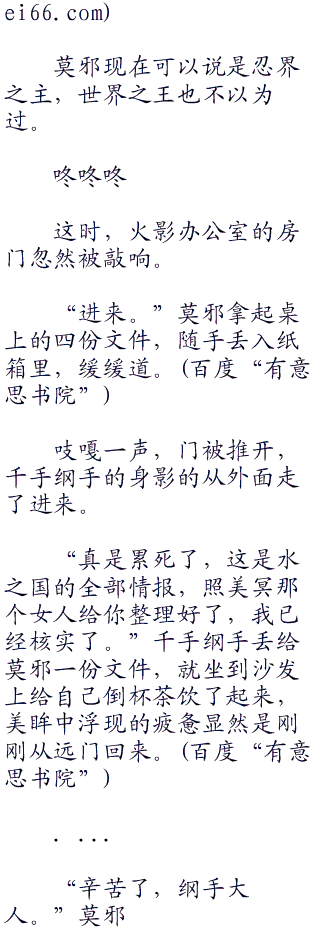 ei66.com)
莫邪现在可以说是忍界
之主，世界之王也不以为
过。
咚咚咚
这时，火影办公室的房
门忽然被敲响。
“进来。”莫邪拿起桌
上的四份文件，随手丢入纸
箱里，缓缓道。(百度“有意
思书院”)
吱嘎一声，门被推开，
千手纲手的身影的从外面走
了进来。
“真是累死了，这是水
之国的全部情报，照美冥那
个女人给你整理好了，我已
经核实了。”千手纲手丢给
莫邪一份文件，就坐到沙发
上给自己倒杯茶饮了起来，
美眸中浮现的疲惫显然是刚
刚从远门回来。(百度“有意
思书院”)
. ...
“辛苦了，纲手大
人。”莫邪